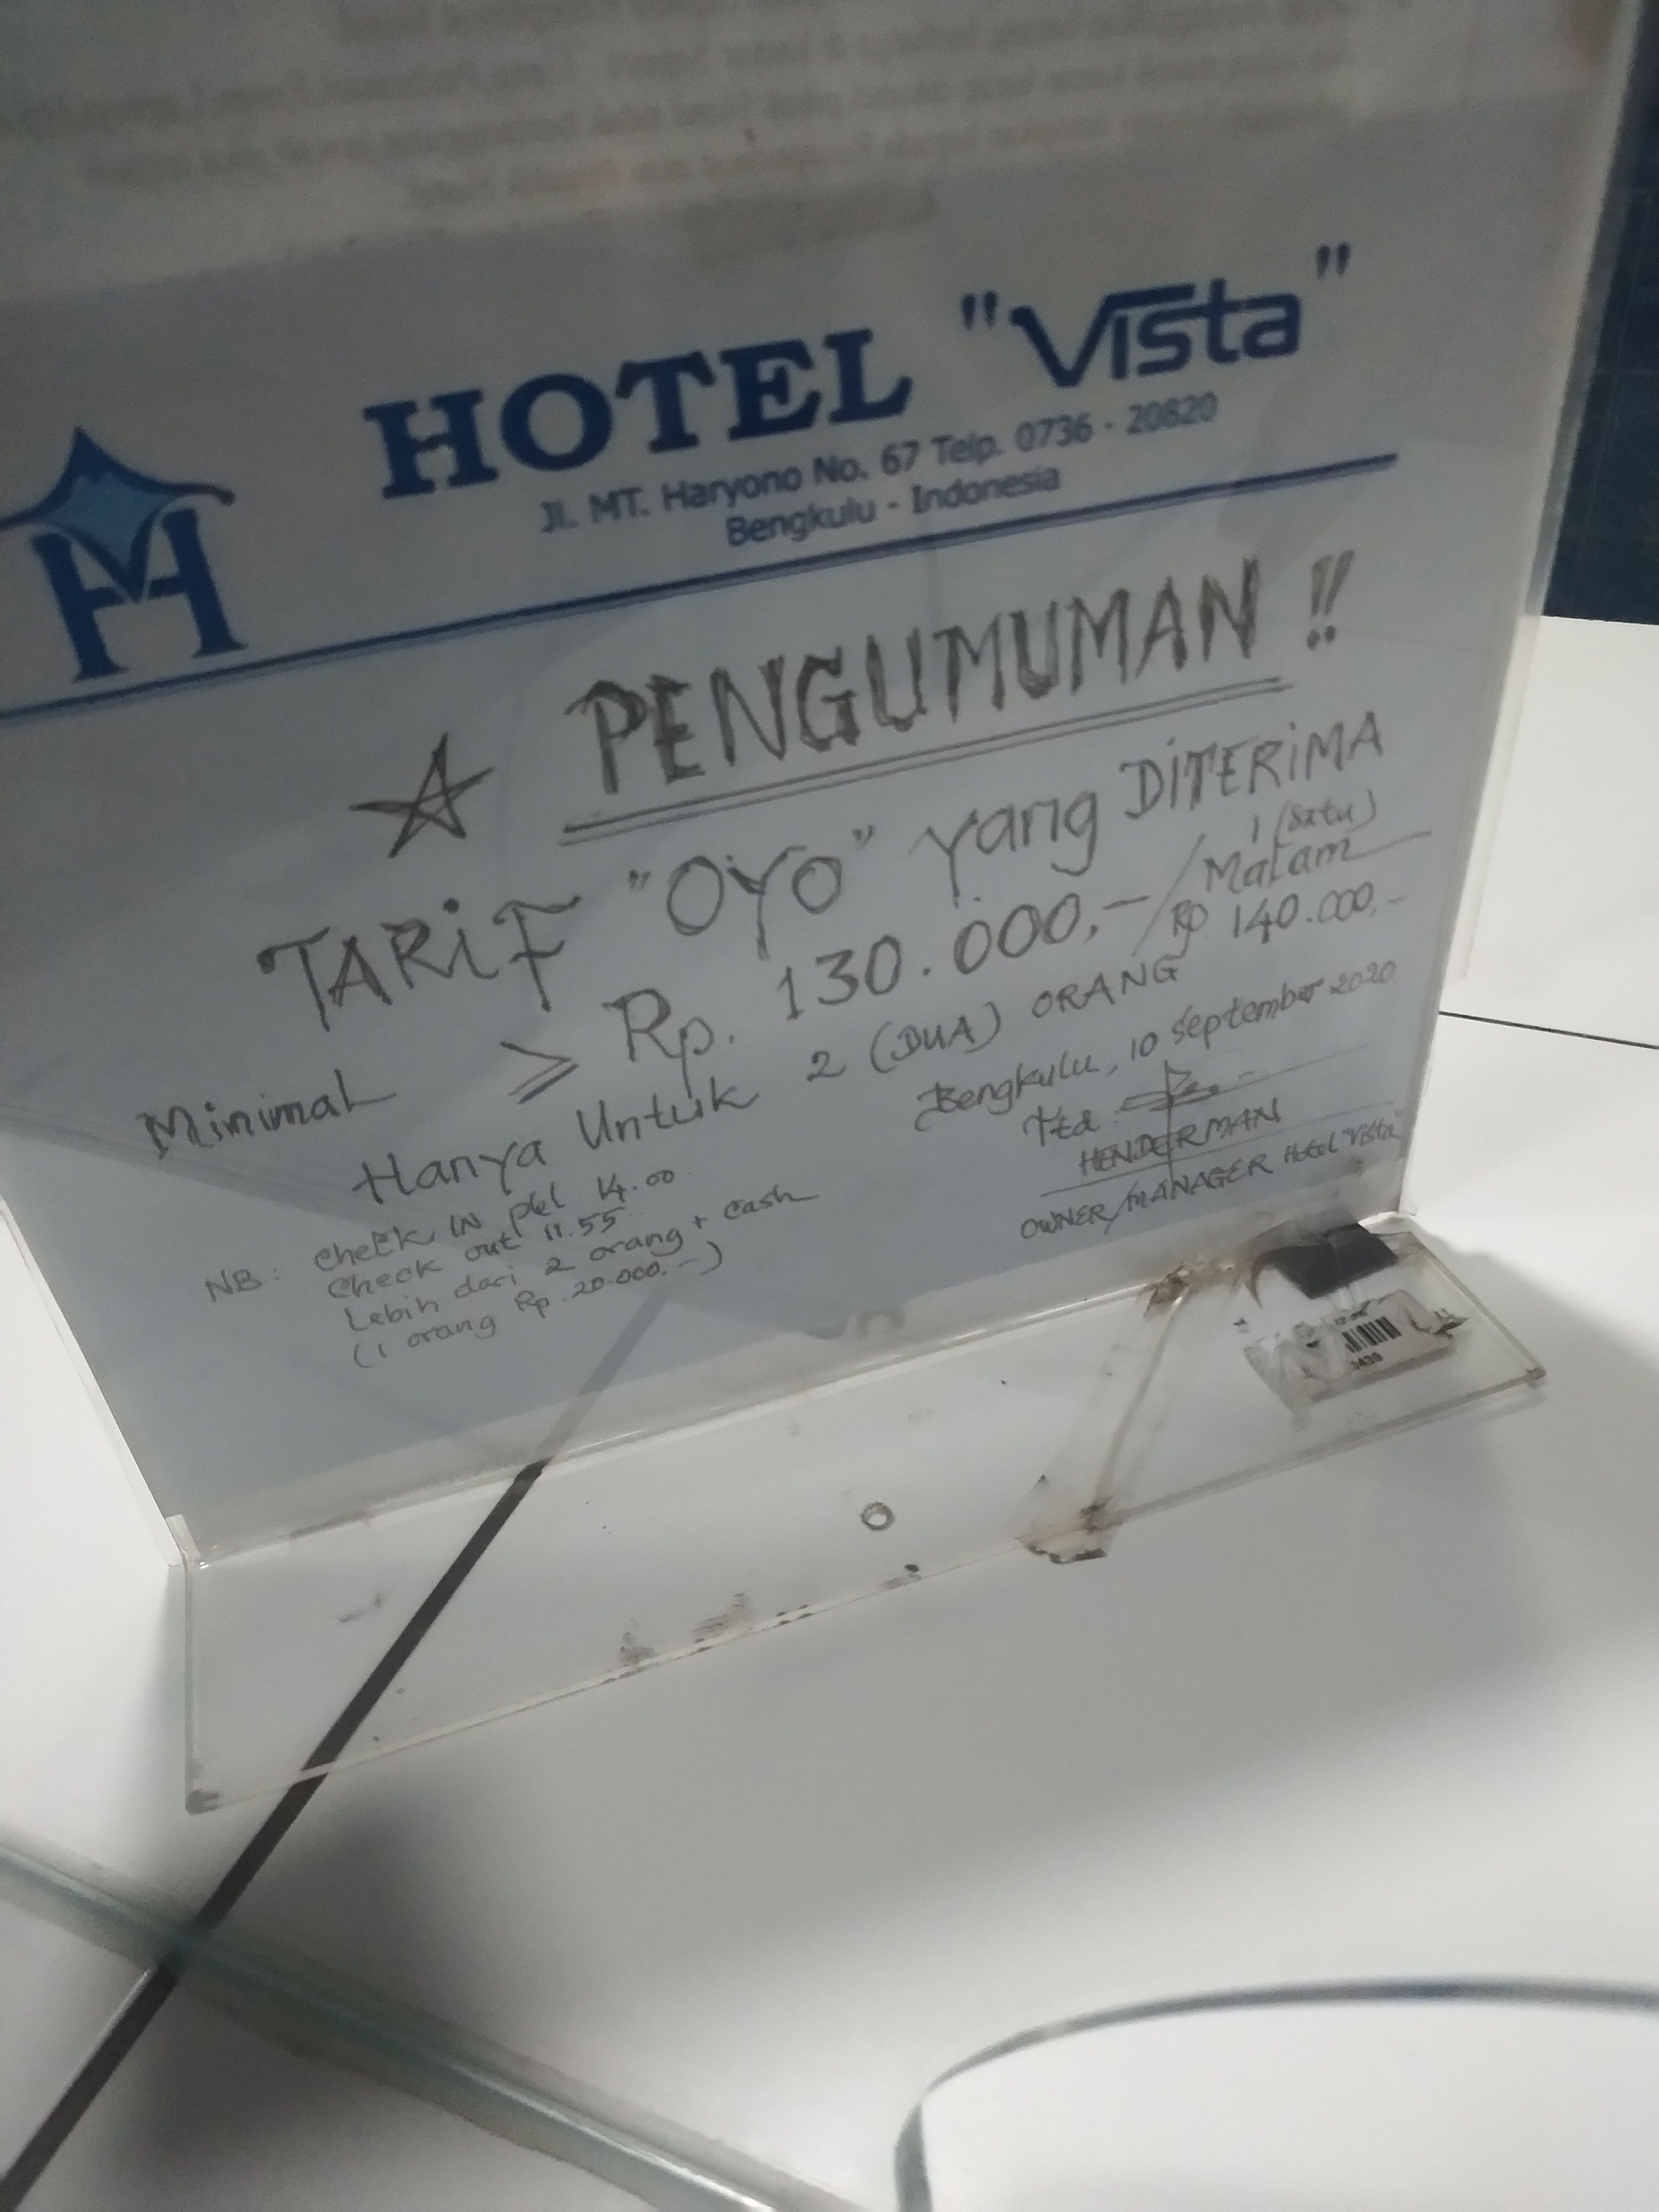 HOTEL "Vista"
Jl. MT. Haryono No. 67 Telp. 0736 - 20820
Bengkulu - Indonesia
PENGUMUMAN !!
TARIF "OYO" yang DITERIMA
Minimal ≥ Rp. 130.000,-/ 1 (Satu) Malam
Rp. 140.000,-
Hanya Untuk 2 (DUA) ORANG
Bengkulu, 10 September 2020
Ttd
HENDERMAN
OWNER/MANAGER Hotel "Vista"
NB: Check IN pkl 14.00
Check out 11.55
Lebih dari 2 orang + cash
(1 orang Rp. 20.000.-)
3439